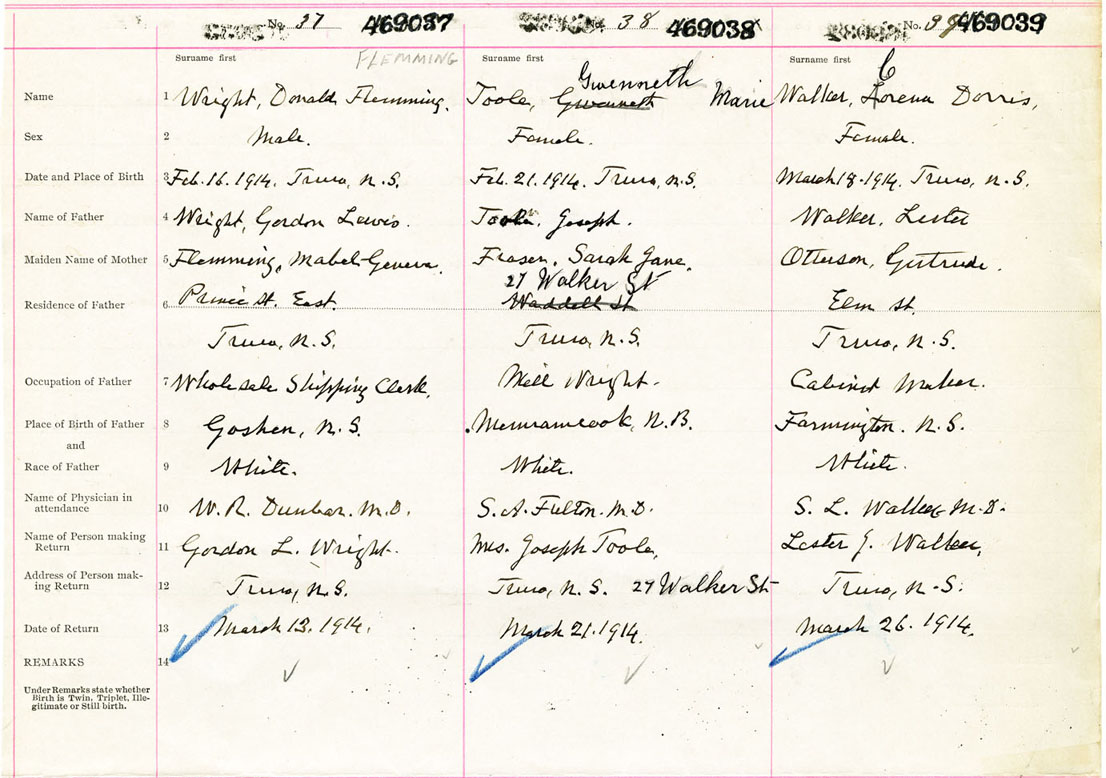 No. 37 469037 No. 38 469038 No. 39 469039
Surname first FLEMMING Surname first Surname first C
Gwenneth
Name 1 Wright, Donald Flemming. Toole, Gwenneth Marie Walker, Lorena Dorris,
Sex 2 Male. Female. Female.
Date and Place of Birth 3 Feb. 16. 1914. Truro, N.S. Feb. 21. 1914. Truro, N.S. March 18. 1914. Truro, N.S.
Name of Father 4 Wright, Gordon Lewis. Toole, Joseph. Walker, Lester
Maiden Name of Mother 5 Flemming, Mabel Geneva. Fraser, Sarah Jane. Otterson, Gertrude.
27 Walker St
Residence of Father 6 Prince St. East. Waddell St Elm St.
Truro, N.S. Truro, N.S. Truro, N.S.
Occupation of Father 7 Wholesale Shipping Clerk. Mill Wright. Cabinet Maker.
Place of Birth of Father 8 Goshen, N.S. Memramcook, N.B. Farmington. N.S.
and
Race of Father 9 White. White. White.
Name of Physician in
attendance 10 W. R. Dunbar. M.D. S. A. Fulton. M.D. S. L. Walker M.D.
Name of Person making
Return 11 Gordon L. Wright. Mrs. Joseph Toole, Lester J. Walker,
Address of Person mak-
ing Return 12 Truro, N.S. Truro, N.S. 27 Walker St Truro, N.S.
Date of Return 13 March 13. 1914. March 21. 1914. March 26. 1914.
REMARKS 14
Under Remarks state whether
Birth is Twin, Triplet, Ille-
gitimate or Still birth.